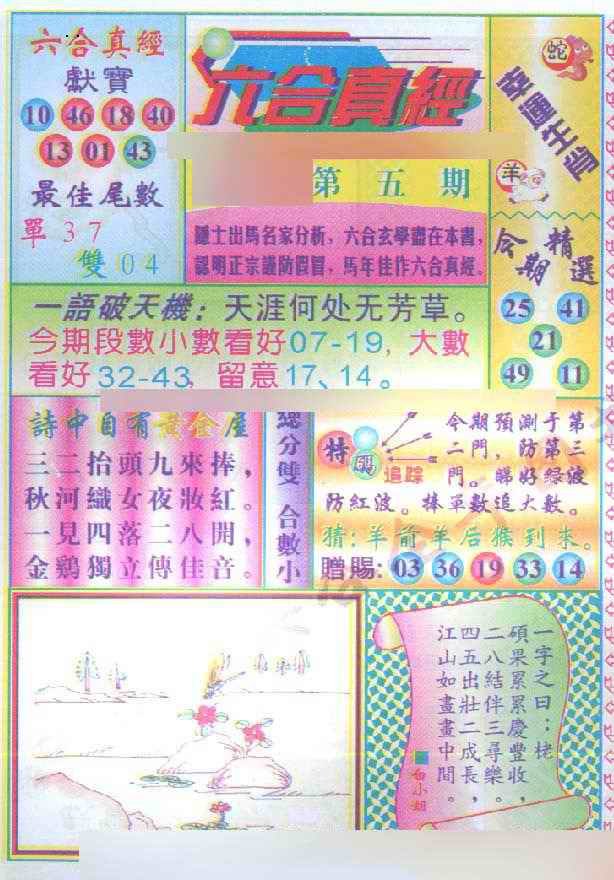 六合真經
獻寶
10 46 18 40
13 01 43
最佳尾數
單 37
雙 04
六合真經
第五期
隱士出馬名家分析，六合玄學盡在本書，
認明正宗謹防假冒，馬年佳作六合真經。
幸運生肖
蛇
羊
今期精選
25 41
21
49 11
一語破天機：天涯何处无芳草。
今期段數小數看好07-19，大數
看好32-43，留意17、14。
詩中自有黃金屋
三二抬頭九來捧，
秋河織女夜妝紅。
一見四落二八開，
金鷄獨立傳佳音。
總分雙 合數小
特
追踪
今期預測于第
二門，防第三
門。睇好绿波
防紅波。捧單數追大數。
猜：羊前羊后猴到来。
贈賜：03 36 19 33 14
一字之曰：栳
碩果累累慶豐收，
二八結伴三尋樂。
四五出壯二成長，
江山如畫畫中間。
白小姐